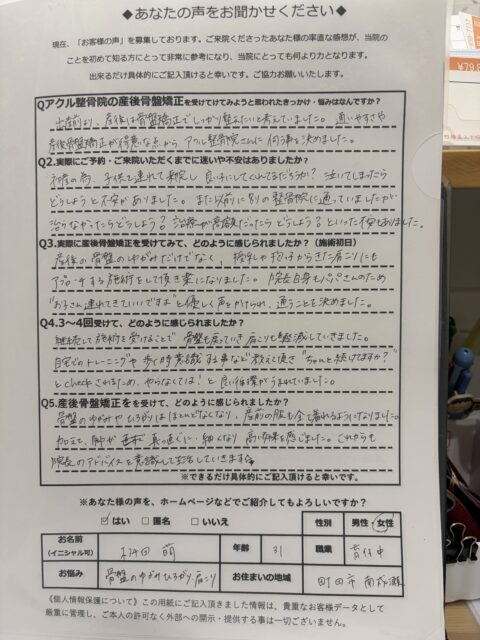 ◆あなたの声をお聞かせください◆
現在、「お客様の声」を募集しております。ご来院くださったあなた様の率直な感想が、当院の
ことを初めて知る方にとって非常に参考になり、当院にとっても何より力となります。
出来るだけ具体的にご記入頂けると幸いです。ご協力お願いいたします。
Qアクル整骨院の産後骨盤矯正を受けてけてみようと思われたきっかけ・悩みはなんですか?
出産前より、産後は骨盤矯正でしっかり整えたいと考えていました。通いやすさや
産後骨盤矯正が得意な点から アクル整骨院さんに 伺う事を決めました。
Q2.実際にご予約・ご来院いただくまでに迷いや不安はありましたか?
初産の為、子供を連れて来院し 良い子にしてくれてるだろうか? 泣いてしまったら
どうしようと不安がありました。また以前に別の整骨院に通っていましたが
治らなかったらどうしよう? 治療が高額だったらどうしよう? といった不安もありました。
Q3.実際に産後骨盤矯正を受けてみて、どのように感じられましたか?(施術初日)
産後の骨盤のゆがみだけでなく、授乳や抱っこからきた肩こりにも
アプローチする施術をして頂き楽になりました。院長自身もパパさんのため
"お子さん連れてきていいですよ"と優しく声をかけられ、通うことを決めました。
Q4.3~4回受けて、どのように感じられましたか?
継続して施術を受けることで 骨盤も戻っていき 肩こりも軽減していきました。
自宅でのトレーニングや 歩く時意識する事など 教えて頂き "ちゃんと続けてますか?"
と checkされるため、やらなくては! と 良い循環がうまれていました。
Q5.産後骨盤矯正をを受けて、どのように感じられましたか?
骨盤のゆがみやひろがりはほとんどなくなり、産前の服も全て着れるようになりました。
加えて、脚が 真っ直ぐに 細くなり 高い効果を感じました。これからも
院長のアドバイスを意識して生活していきます
※できるだけ具体的にご記入頂けると幸いです。
※あなた様の声を、ホームページなどでご紹介してもよろしいですか?
☑はい □匿名 □いいえ
性別 男性・女性
お名前
(イニシャル可) 萌 年齢 31 職業 育休中
お悩み 骨盤のゆがみひろがり、肩こり お住まいの地域 町田市 南成瀬
《個人情報保護について》この用紙にご記入頂きました情報は、貴重なお客様データとして
厳重に管理し、ご本人の許可なく外部への開示・提供する事は一切ございません。